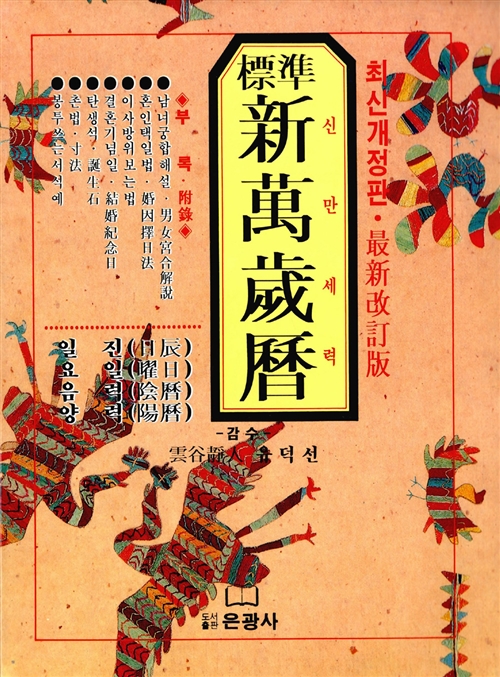 標準
新萬歲曆
신만세력
최신개정판·最新改訂版
◈부록·附錄◈
●남녀궁합해설·男女宮合解說
●혼인택일법·婚因擇日法
●이사방위보는법
●결혼기념일·結婚紀念日
●탄생석·誕生石
●촌법·寸法
●봉투쓰는서식예
일진(日辰)
요일(曜日)
음력(陰曆)
양력(陽曆)
-감수-
雲谷
人 유덕선
도서출판 은광사